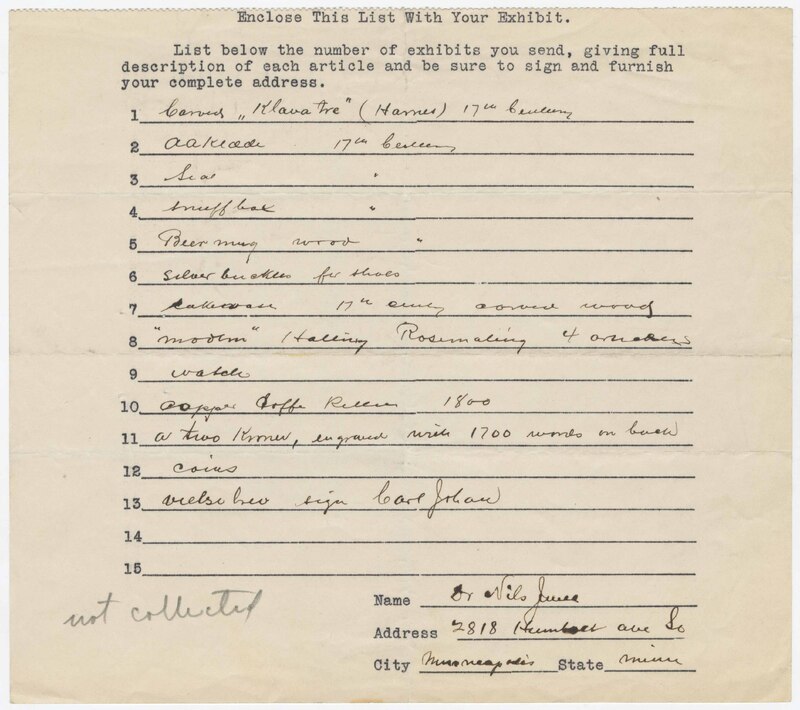 Enclose This List With Your Exhibit.
List below the number of exhibits you send, giving full
description of each article and be sure to sign and furnish
your complete address.
1 Carved „Klavatre" (Harnes) 17th Century
2 aaklade 17th Century
3 Seal "
4 snuff box "
5 Beer mug wood "
6 silver buckles for shoes
7 17th carved wood
8 "modern" Halling Rosemaling 4
9 watch
10 copper 1800
11 a two Kroner, engraved with 1700 words on back
12 coins
13 sign Carl Johan
14
15
not collected
Name Dr Nils
Address 2818 Humbolt ave So
City Minneapolis State Minn